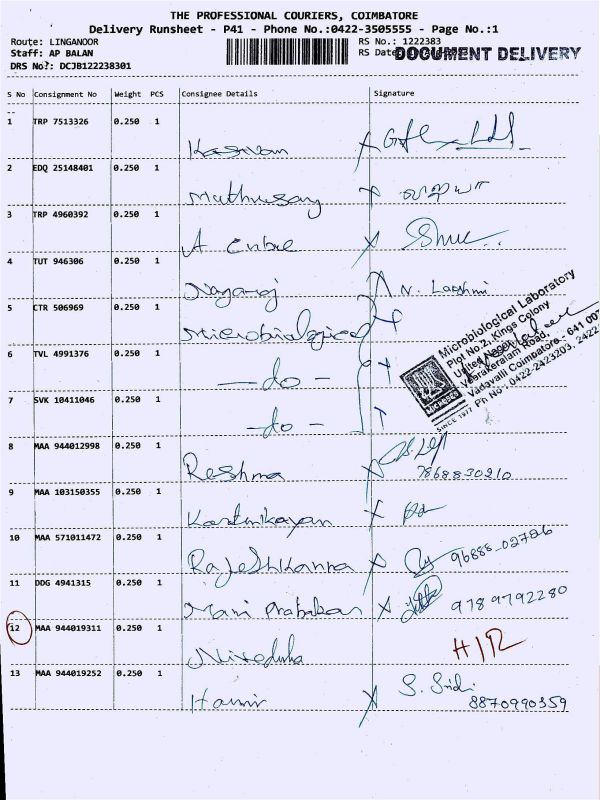 THE PROFESSIONAL COURIERS, COIMBATORE
Delivery Runsheet - P41 - Phone No.:0422-3505555 - Page No.:1
Route: LINGANOOR
RS No.: 1222383
Staff: AP BALAN
RS Date
DOCUMENT DELIVERY
DRS No?: DCJB122238301
S No Consignment No Weight PCS Consignee Details Signature
1 TRP 7513326 0.250 1
2 EDQ 25148401 0.250 1
Mathusay
3 TRP 4960392 0.250 1
A
4 TUT 946306 0.250 1
Nagaraj N. Lakshmi
5 CTR 506969 0.250 1
Microbiological
Microbiological Laboratory
Plot No.2, Kings Colony
United Nagar,
Veerakeralam Road,
Vadavalli Coimbatore - 641 007
Ph No : 0422-2423203, 2422
SINCE 1977
6 TVL 4991376 0.250 1
-do-
7 SVK 10411046 0.250 1
-do-
8 MAA 944012998 0.250 1
Reshma 7868830210
9 MAA 103150355 0.250 1
Kartnikayan
10 MAA 571011472 0.250 1
Rajeshkanna 96888-02786
11 DDG 4941315 0.250 1
Mani Prabakar 9789792280
12 MAA 944019311 0.250 1
Niveduha
13 MAA 944019252 0.250 1
S. Sridi
8870990359